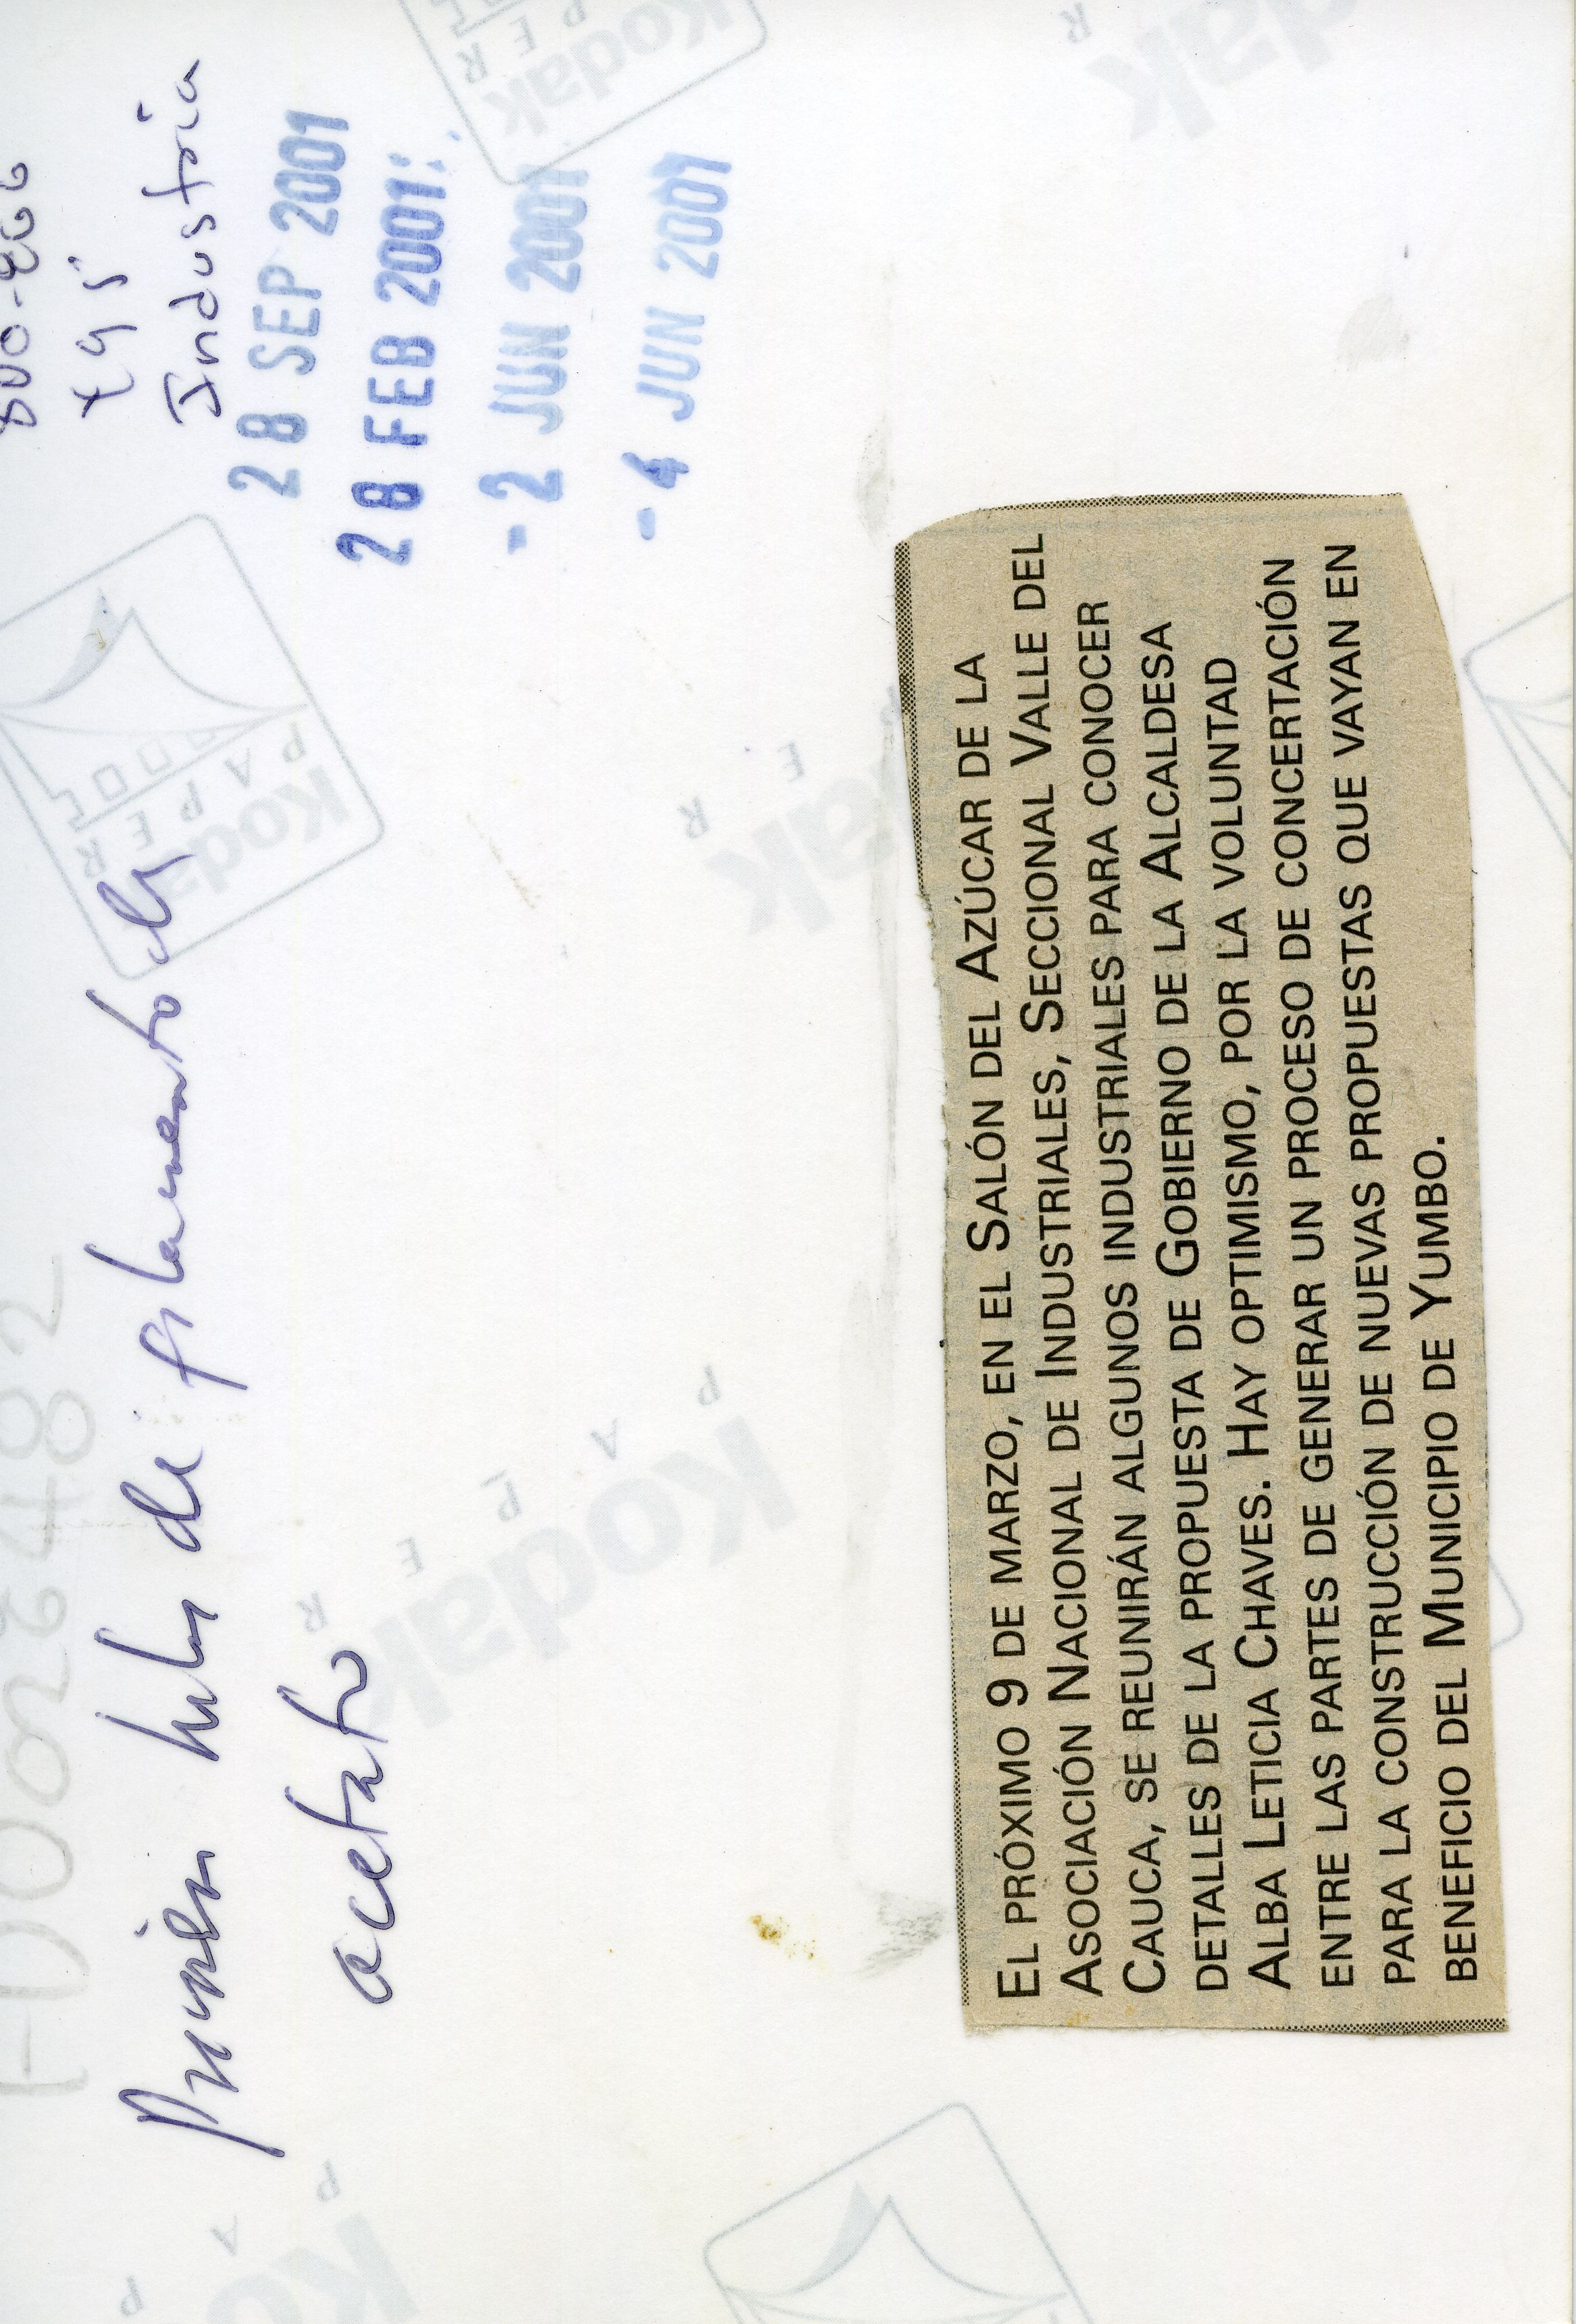 Industria
28 SEP 2001
28 FEB 2001
-2 JUN 2001
-4 JUN 2001
de filamento de
acetato
EL PRÓXIMO 9 DE MARZO, EN EL SALÓN DEL AZÚCAR DE LA
ASOCIACIÓN NACIONAL DE INDUSTRIALES, SECCIONAL VALLE DEL
CAUCA, SE REUNIRÁN ALGUNOS INDUSTRIALES PARA CONOCER
DETALLES DE LA PROPUESTA DE GOBIERNO DE LA ALCALDESA
ALBA LETICIA CHAVES. HAY OPTIMISMO, POR LA VOLUNTAD
ENTRE LAS PARTES DE GENERAR UN PROCESO DE CONCERTACIÓN
PARA LA CONSTRUCCIÓN DE NUEVAS PROPUESTAS QUE VAYAN EN
BENEFICIO DEL MUNICIPIO DE YUMBO.
Kodak
PAPER